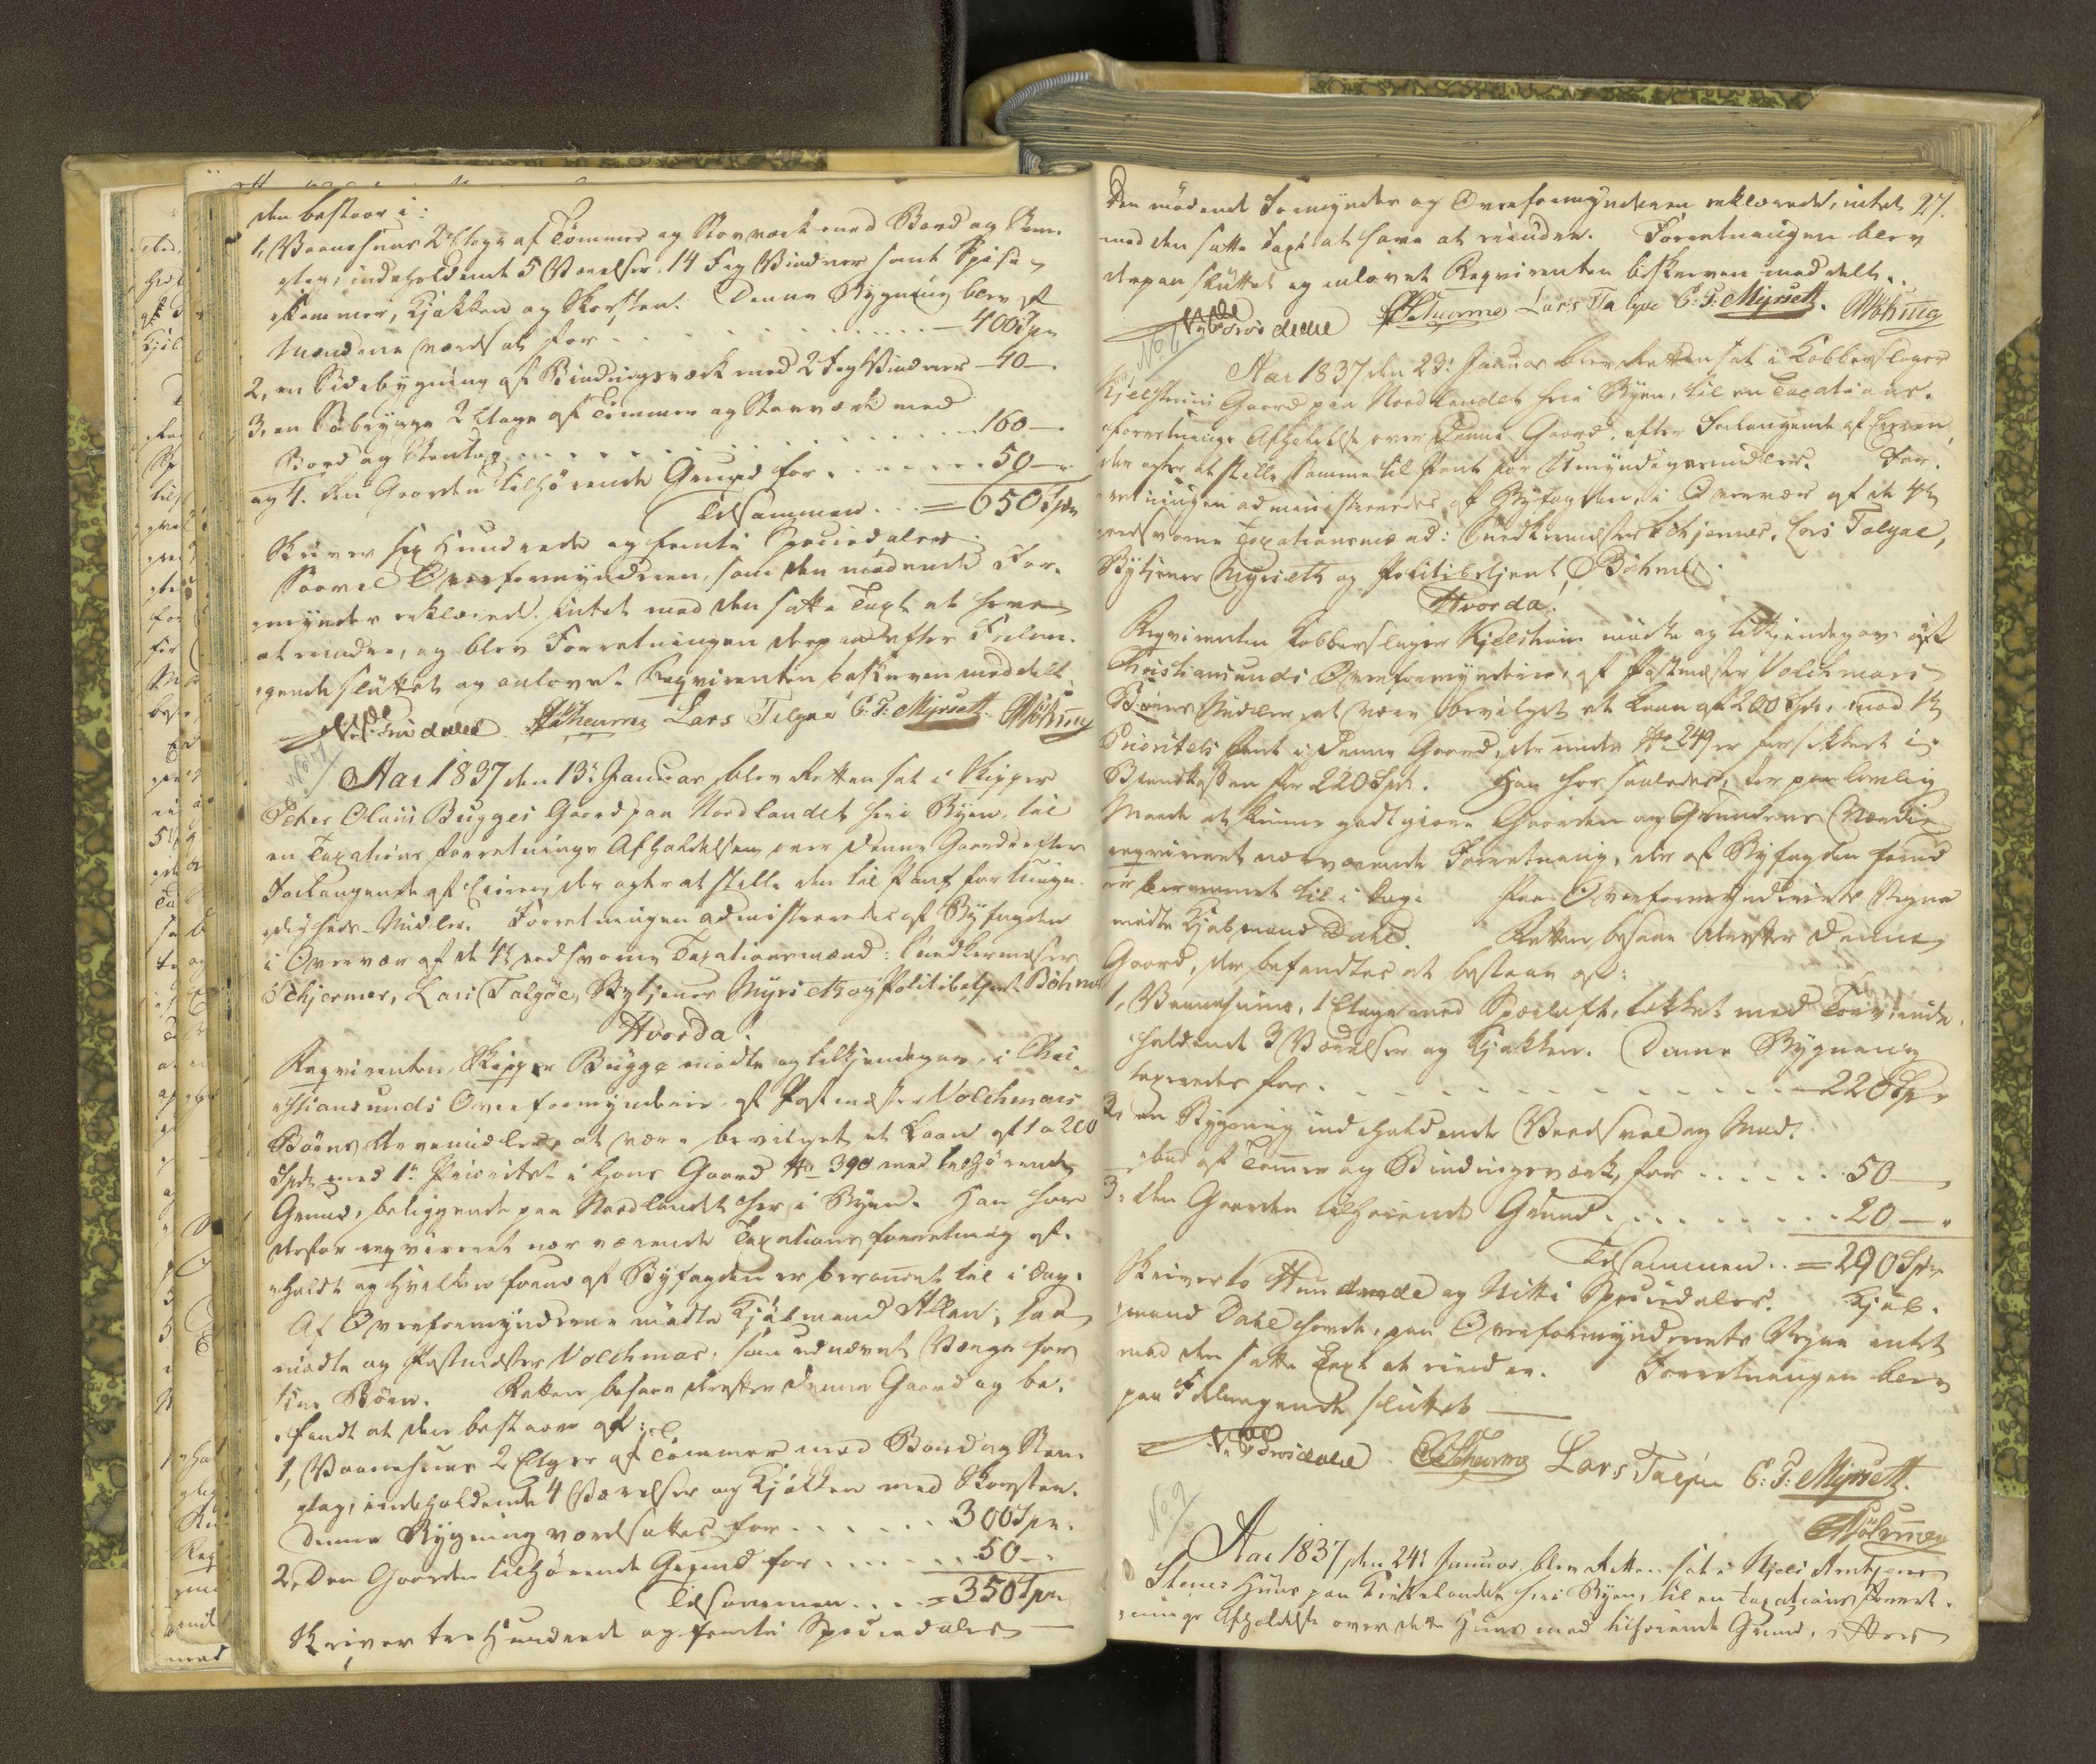 den bestaar i:
1, Vaanehuus 2 Etage af Tømmer og Storværk med Bord og Steen-
tag, indeholdende 5 Værelser, 14 Fag Vinduer samt Spise-
kammer, Kjøkken og Skorsteen. Denne Bygning blev af
Mændene værdsat for . . . . . 400 Spd
2, en Sidebygning af Bindingsværk med 2 Fag Vinduer - 40 -
3, en Søbrygge 2 Etage af Tømmer og Storværk med
Bord og Steentag . . . . . 160 -
og 4. den Gaarden tilhørende Grund for . . . . . 50 -
Tilsammen . . . = 650 Spd
Skriver sex Hundrede og femti Speciedaler.
Saavel Overformynderen, som den mødende For-
mynder erklærede Intet mod den satte Taxt at have
at erindre, og blev Forretningen derpaa efter Forlan-
gende sluttet og anlovet Reqvirenten beskreven meddelt.
Lars Talgøe C. F. Myrseth. Böhme
No 7
Aar 1837 den 13de Januar, blev Retten sat i Skipper
Peter Olaus Bugges Gaard paa Nordlandet her i Byen, til
en Taxations forretnings Afholdelse over denne Gaard efter
Forlangende af Eieren, der agter at stille den til Pant for Umyn-
digheds-Midler. Forretningen administreredes af Byfogden
i Overvær af de 4de eedsvorne Taxationsmænd: Snedkermester
Schjermer, Lars Talgøe, Bytjener Myrseth og Politibetjent Böhme
Hvorda!
Reqvirenten Skipper Bugge mødte og tilkjendegav, i Chri-
stiansunds Overformynderie, af Postmester Volckmars
Børns Arvemidler, at være bevilget et Laan af 1 a 200
Spd mod 1ste Prioritet i hans Gaard No 390 med tilhørende
Grund, beliggende paa Nordlandet her i Byen. Han har
derfor reqvireret nærværende Taxations forretning af-
holdt og hvilken forud af Byfogden er berammet til i Dag.
Af Overformynderne mødte Kjøbmand Allan; saa
mødte og Postmester Volckmar, som udnævnt Værge for
sine Børn. Retten besaae derefter denne Gaard og be-
fandt at den bestaaer af:
1, Vaanehuus 2 Etager af Tømmer med Bord og Steen-
tag, indeholdende 4 Værelser og Kjøkken med Skorsteen.
Denne Bygning værdsattes for . . . . . 300 Spd.
2, Den Gaarden tilhørende Grund for . . . . . 50 -
Tilsammen . . . = 350 Spd
Skriver tre Hundrede og femti Speciedaler
27.
Den mødende Formynder og Overformynderen erklærede, intet
mod den satte Taxt at have at erindre. Forretningen blev
derpaa sluttet og anlovet Reqvirenten beskreven meddelt.
Lars Talgøe C. F. Myrseth. Böhme
No 8
Aar 1837 den 23de Januar blev Retten sat i Kobberslager
Kjelstrins Gaard paa Nordlandet her i Byen, til en Taxations-
forretnings Afholdelse over denne Gaard, efter Forlangende af Eieren,
der agter at stille samme til Pant for Umyndigesmidler. For-
retningen administreredes af Byfogden, i Overvær af de 4de
eedsvorne Taxationsmænd: Snedkermester Schjermer, Lars Talgøe,
Bytjener Myrseth og Politibetjent Böhme
Hvorda!
Reqvirenten Kobberslager Kjelstrin mødte og tilkjendegav af
Christiansunds Overformynderie, af Postmester Volckmars
Børns Midler, at være bevilget et Laan af 200 Spd. mod 1ste
Prioritets Pant i denne Gaard, der under No 249 er forsikkret i
Brandkassen for 220 Spd. Han har saaledes, for paa lovlig
Maade at kunne godtgjøre Gaarden og Grundens Værdie
reqvireret nærværende Forretning, der af Byfogden forud
er berammet til i Dag. Paa Overformynderiets Vegne
mødte Kjøbmand Dahl. Retten besaae derefter denne
Gaard, der befandtes at bestaae af:
1, Vaanehuus, 1 Etage med Spærloft, tækket med Torv, inde-
holdende 3 Værelser og Kjøkken. Denne Bygning
taxeredes for . . . . . 220 Spd
2, en Bygning indeholdende Vedskeel og Mad-
bod af Tømmer og Bindingsværk, for . . . . . 50 -
3, den Gaarden tilhørende Grund . . . . . 20 -
Tilsammen . . = 290 Spd
Skriver to Hundrede og Nitti Speciedaler. Kjøb-
mand Dahl havde, paa Overformynderiets Vegne intet
mod den satte Taxt at erindre. Forretningen blev
paa Forlangende sluttet
Lars Talgøe C. F. Myrseth.
Böhme
No 9
Aar 1837, den 24de Januar, blev Retten sat i
Huus paa Kirkelandet her i Byen, til en Taxations Forret-
nings Afholdelse over dette Huus med tilhørende Grund,